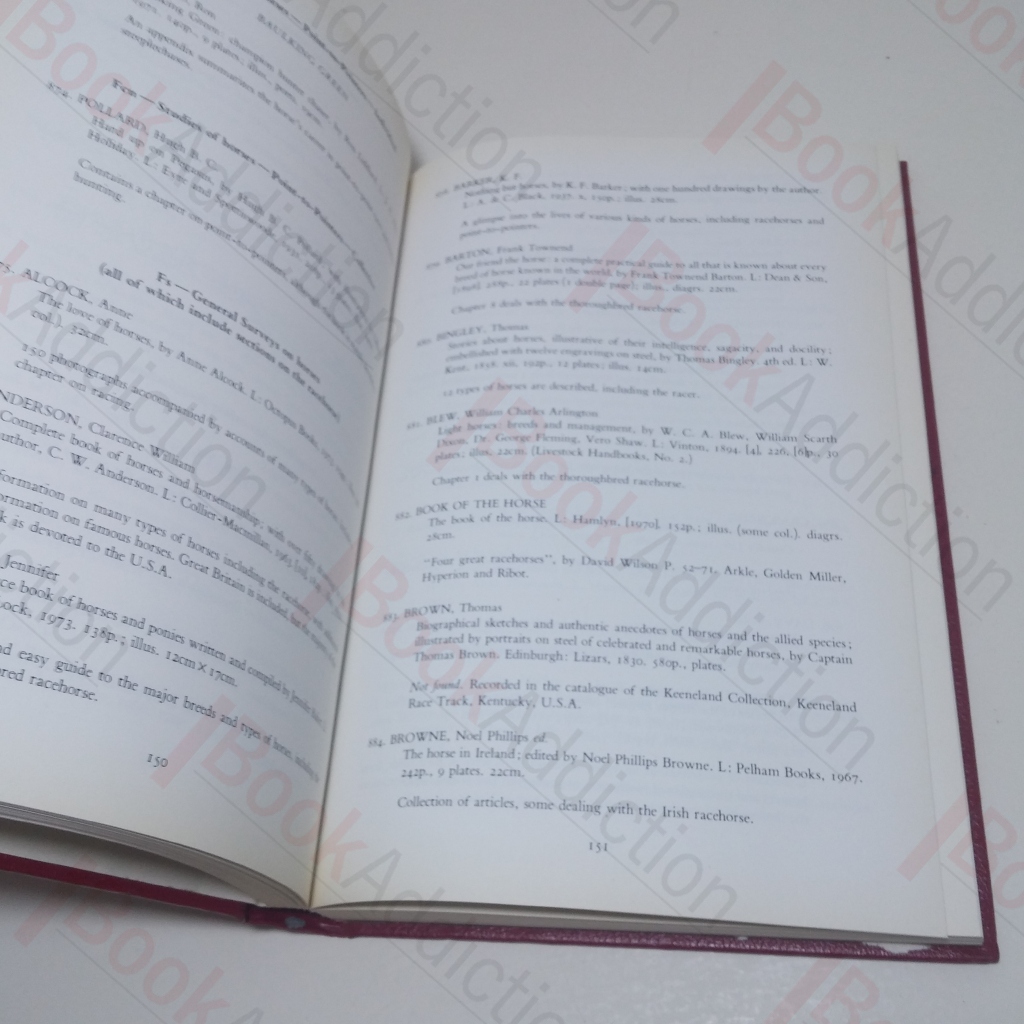 An appendix summarises the horse's career in point-to-points and
steeplechases.
Fcm — Studies of horses — Point-to-Pointers
874. POLLARD, Hugh B. C.
Hard up on Pegasus, by Hugh B. C. Pollard
Holiday. L: Eyre and Spottiswoode, 1931.
Contains a chapter on point-to-point
hunting.
F1 — General Surveys on horses
(all of which include sections on the racehorse)
75. ALCOCK, Anne
The love of horses, by Anne Alcock. L: Octopus Books
col.). 32cm.
150 photographs accompanied by accounts of many types of
chapter on racing.
NDERSON, Clarence William
Complete book of horses and horsemanship; with
uthor, C. W. Anderson. L: Collier-Macmillan, 1963
formation on many types of horses including the racehorse
ormation on famous horses. Great Britain is included, but the
k as devoted to the U.S.A.
Jennifer
ce book of horses and ponies written and compiled by Jennifer
ock, 1973. 138p.; illus. 12cm × 17cm.
nd easy guide to the major breeds and types of horse, including
red racehorse.
150
BARKER, K. F.
Nothing but horses, by K. F. Barker; with one hundred drawings by the author.
L: A. & C. Black, 1937. x, 150p.; illus. 28cm.
A glimpse into the lives of various kinds of horses, including racehorses and
point-to-pointers.
BARTON, Frank Townend
Our friend the horse: a complete practical guide to all that is known about every
breed of horse known in the world, by Frank Townend Barton. L: Dean & Son,
22 plates (1 double page); illus., diagrs. 22cm.
Chapter 8 deals with the thoroughbred racehorse.
BINGLEY, Thomas
Stories about horses, illustrative of their intelligence, sagacity, and docility;
embellished with twelve engravings on steel, by Thomas Bingley. 4th ed. L: W.
Kent, 1858. xii, 192p., 12 plates; illus. 14cm.
12 types of horses are described, including the racer.
881. BLEW, William Charles Arlington
Light horses: breeds and management, by W. C. A. Blew, William Scarth
Dixon, Dr. George Fleming, Vero Shaw. L: Vinton, 1894. [4], 226, [6]p., 30
plates; illus. 22cm. (Livestock Handbooks, No. 2.)
Chapter 1 deals with the thoroughbred racehorse.
882. BOOK OF THE HORSE
The book of the horse. L: Hamlyn, [1970]. 152p.; illus. (some col.). diagrs.
28cm.
"Four great racehorses", by David Wilson P. 52–71, Arkle, Golden Miller,
Hyperion and Ribot.
883. BROWN, Thomas
Biographical sketches and authentic anecdotes of horses and the allied species;
illustrated by portraits on steel of celebrated and remarkable horses, by Captain
Thomas Brown. Edinburgh: Lizars, 1830. 580p., plates.
Not found. Recorded in the catalogue of the Keeneland Collection, Keeneland
Race Track, Kentucky, U.S.A.
884. BROWNE, Noel Phillips ed.
The horse in Ireland; edited by Noel Phillips Browne. L: Pelham Books, 1967.
242p., 9 plates. 22cm.
Collection of articles, some dealing with the Irish racehorse.
151